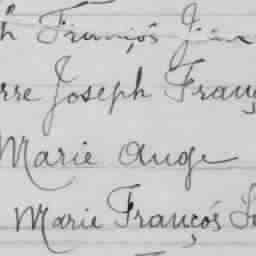 h François
rre Joseph Franç
Marie Ange
Marie François